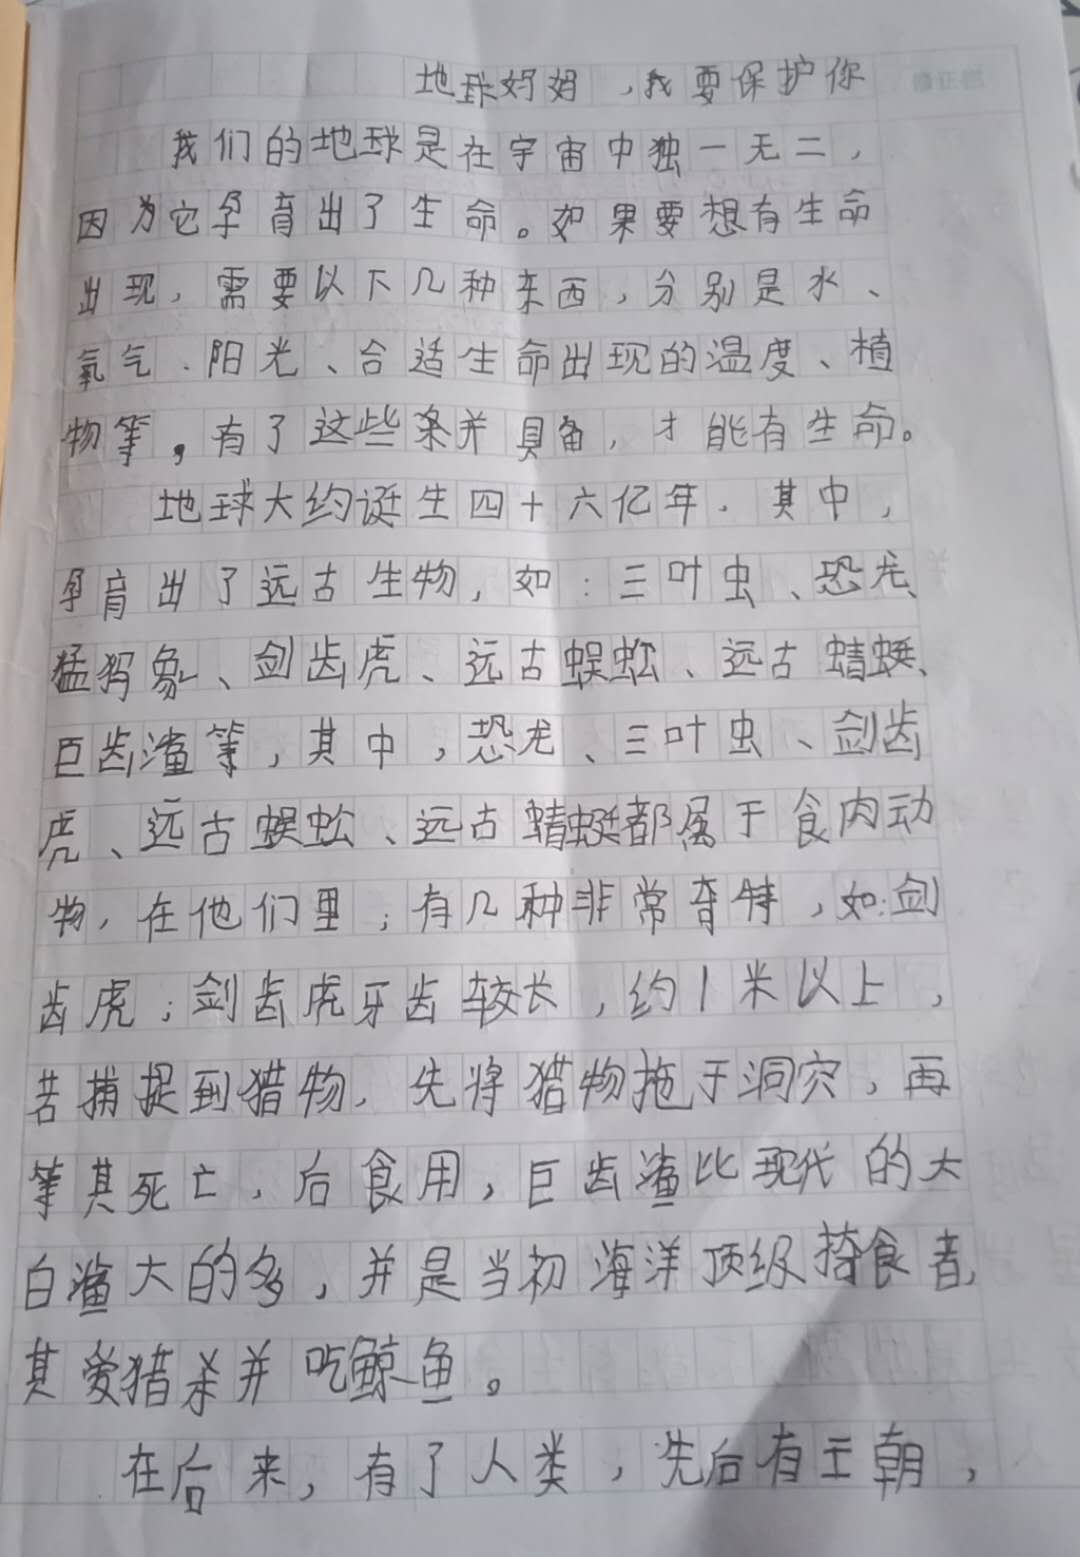 地球妈妈，我要保护你
我们的地球是在宇宙中独一无二，
因为它孕育出了生命。如果要想有生命
出现，需要以下几种东西，分别是水、
氧气、阳光、合适生命出现的温度、植
物等。有了这些条并具备，才能有生命。
地球大约诞生四十六亿年．其中，
孕育出了远古生物，如：三叶虫、恐龙、
猛犸象、剑齿虎、远古蜈蚣、远古蜻蜓、
巨齿鲨等，其中，恐龙、三叶虫、剑齿
虎、远古蜈蚣、远古蜻蜓都属于食肉动
物，在他们里；有几种非常奇特，如：剑
齿虎；剑齿虎牙齿较长，约1米以上，
若捕捉到猎物，先将猎物拖于洞穴，再
等其死亡，后食用，巨齿鲨比现代的大
白鲨大的多，并是当初海洋顶级掠食者，
其爱猎杀并吃鲸鱼。
在后来，有了人类，先后有王朝，